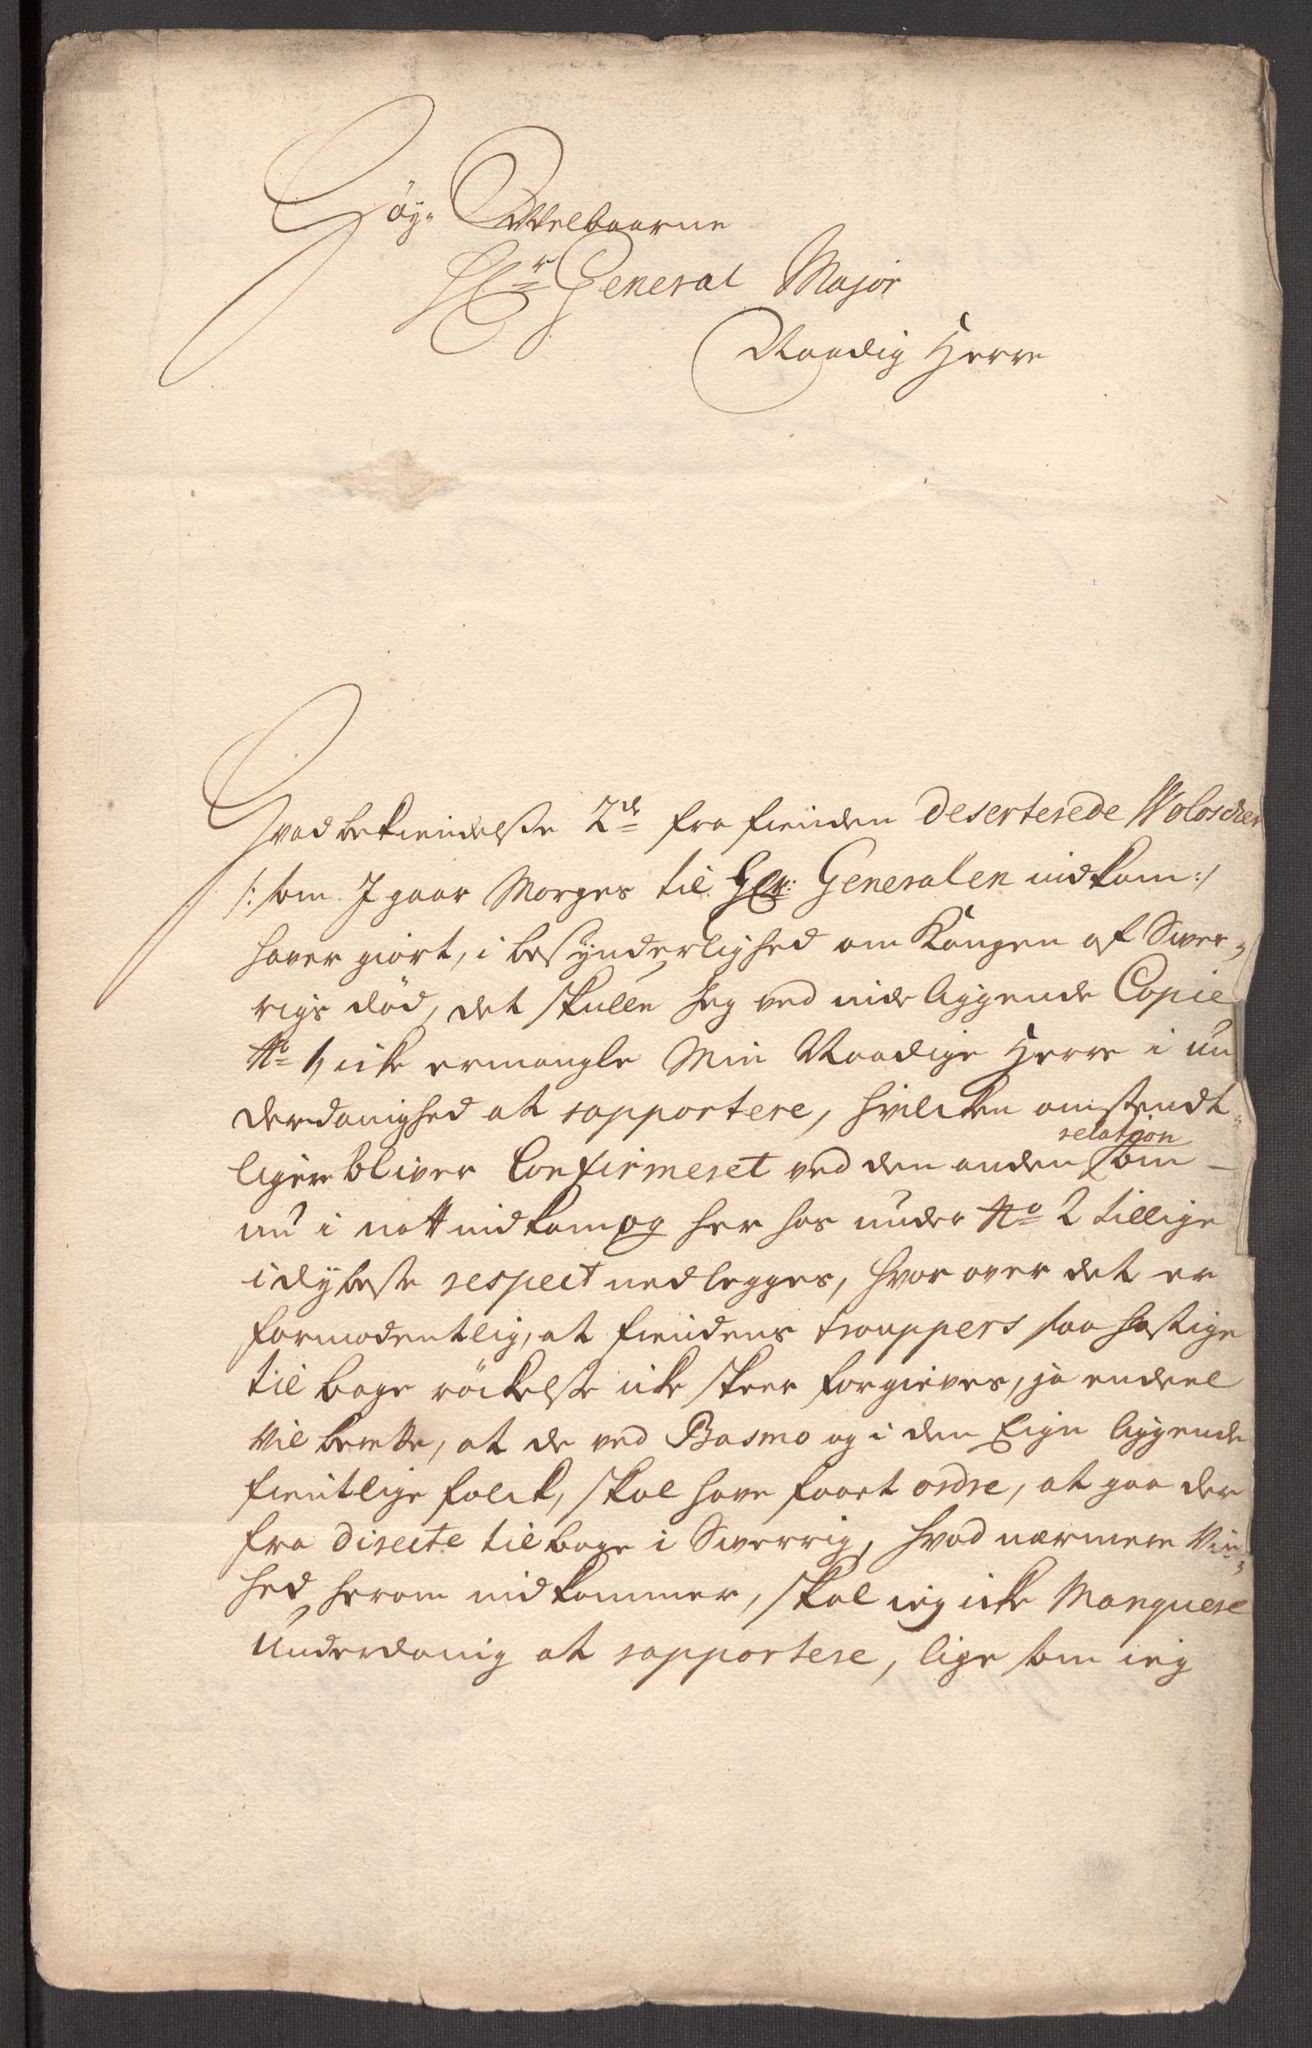 Høy- Welbaarne
Hr General Major
Naadig Herre
Hvad bekiendelse 2de fra fienden deserterede Woloscher
/: som I gaar Morges til Hr: Generalen indkom :/
haver giort, i besynderlighed om Kongen af Swer-
rigs død, det skulle Jeg ved inde liggende Copie
No 1, icke ermangle Min Naadige Herre i un
derdanighed at rapportere, hvilcken omstendt-
ligere bliver Confirmeret ved den anden relation som
nu i natt indkom og her hos under No 2 tillige
i dybeste respect nedlegges, hvor over det er
formodentlig, at fiendens trouppers saa hastige
til bage röckelse icke skeer forgieves, ja endeel
vil berette, at de ved Basmo og i den Eign liggende
fientlige folck, skal have faaet ordre, at gaa der
fra directe tilbage i Swerrig, hvad nærmere Vis-
hed herom indkommer, skal ieg icke Manquere
Underdanig at rapportere, lige som ieg